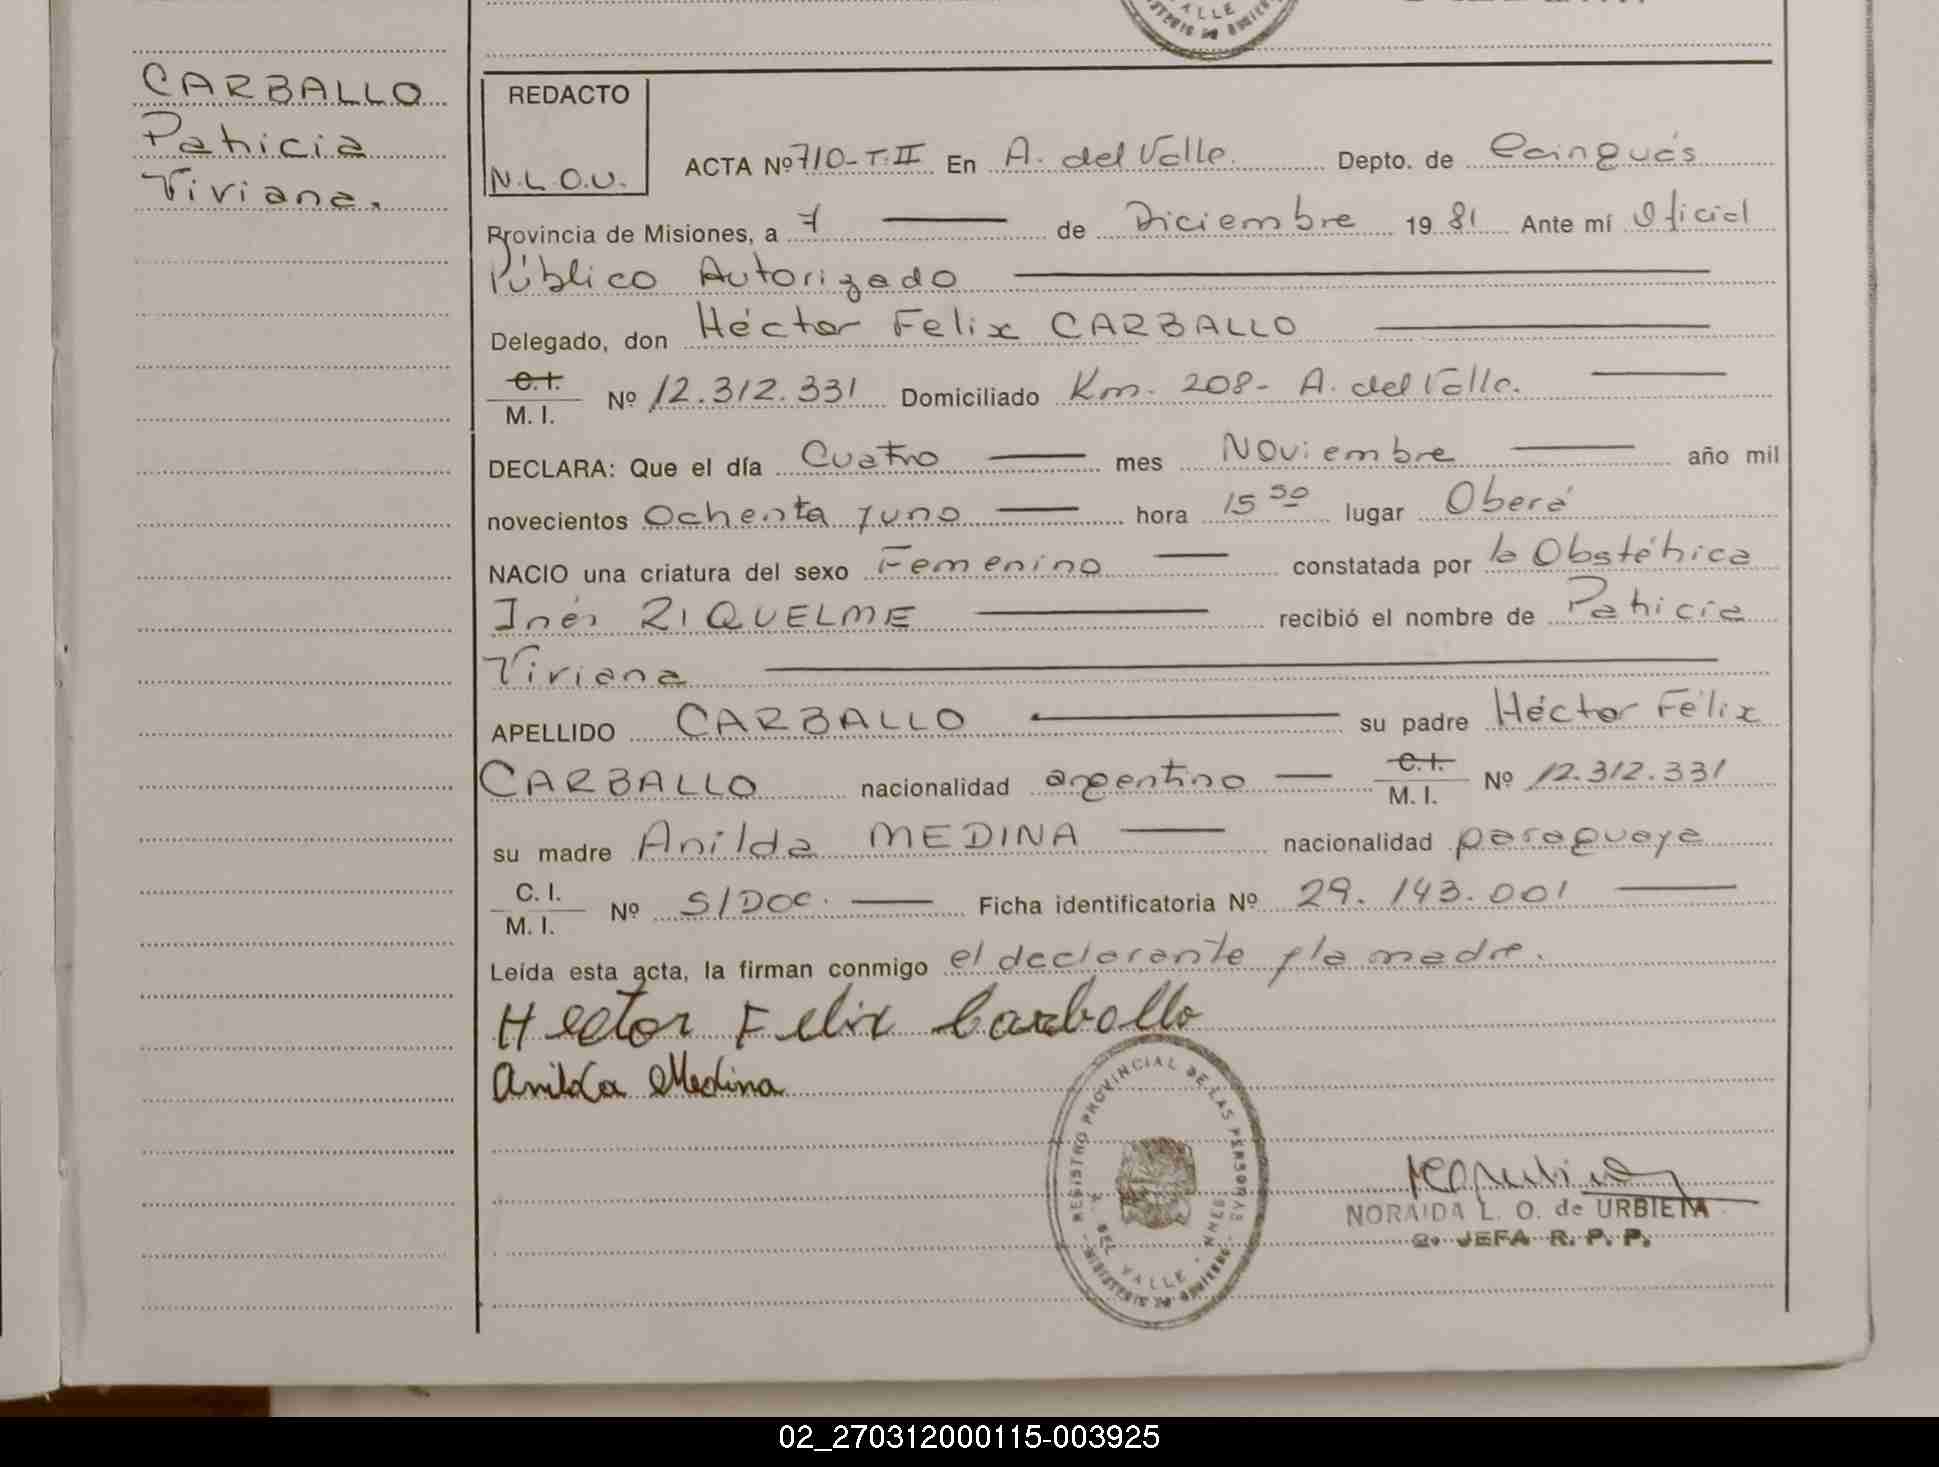 VALLE
MINISTERIO DE GOBIERNO
CARBALLO
Patricia
Viviana.
REDACTO
N.L.O.U.
ACTA Nº 710-T.II En A. del Valle. Depto. de Cainguás
Provincia de Misiones, a 7 de Diciembre 1981 Ante mí Oficial
Público Autorizado
Delegado, don Héctor Felix CARBALLO
C.I.
M. I. Nº 12.312.331 Domiciliado Km. 208- A. del Valle.
DECLARA: Que el día Cuatro mes Noviembre año mil
novecientos Ochenta y uno hora 15 30 lugar Oberá
NACIO una criatura del sexo Femenino constatada por la Obstétrica
Inés RIQUELME recibió el nombre de Patricia
Viviana
APELLIDO CARBALLO su padre Héctor Félix
CARBALLO nacionalidad argentino C.I. M. I. Nº 12.312.331
su madre Anilda MEDINA nacionalidad paraguaya
C. I.
M. I. Nº S/Doc. Ficha identificatoria Nº 29.143.001
Leída esta acta, la firman conmigo el declarante y la madre.
Hector Felix Carballo
Anilda Medina
REGISTRO PROVINCIAL DE LAS PERSONAS
DEL VALLE - MNES
MINISTERIO DE GOBIERNO
NORAIDA L. O. de URBIETA
a. JEFA R. P. P.
02_270312000115-003925